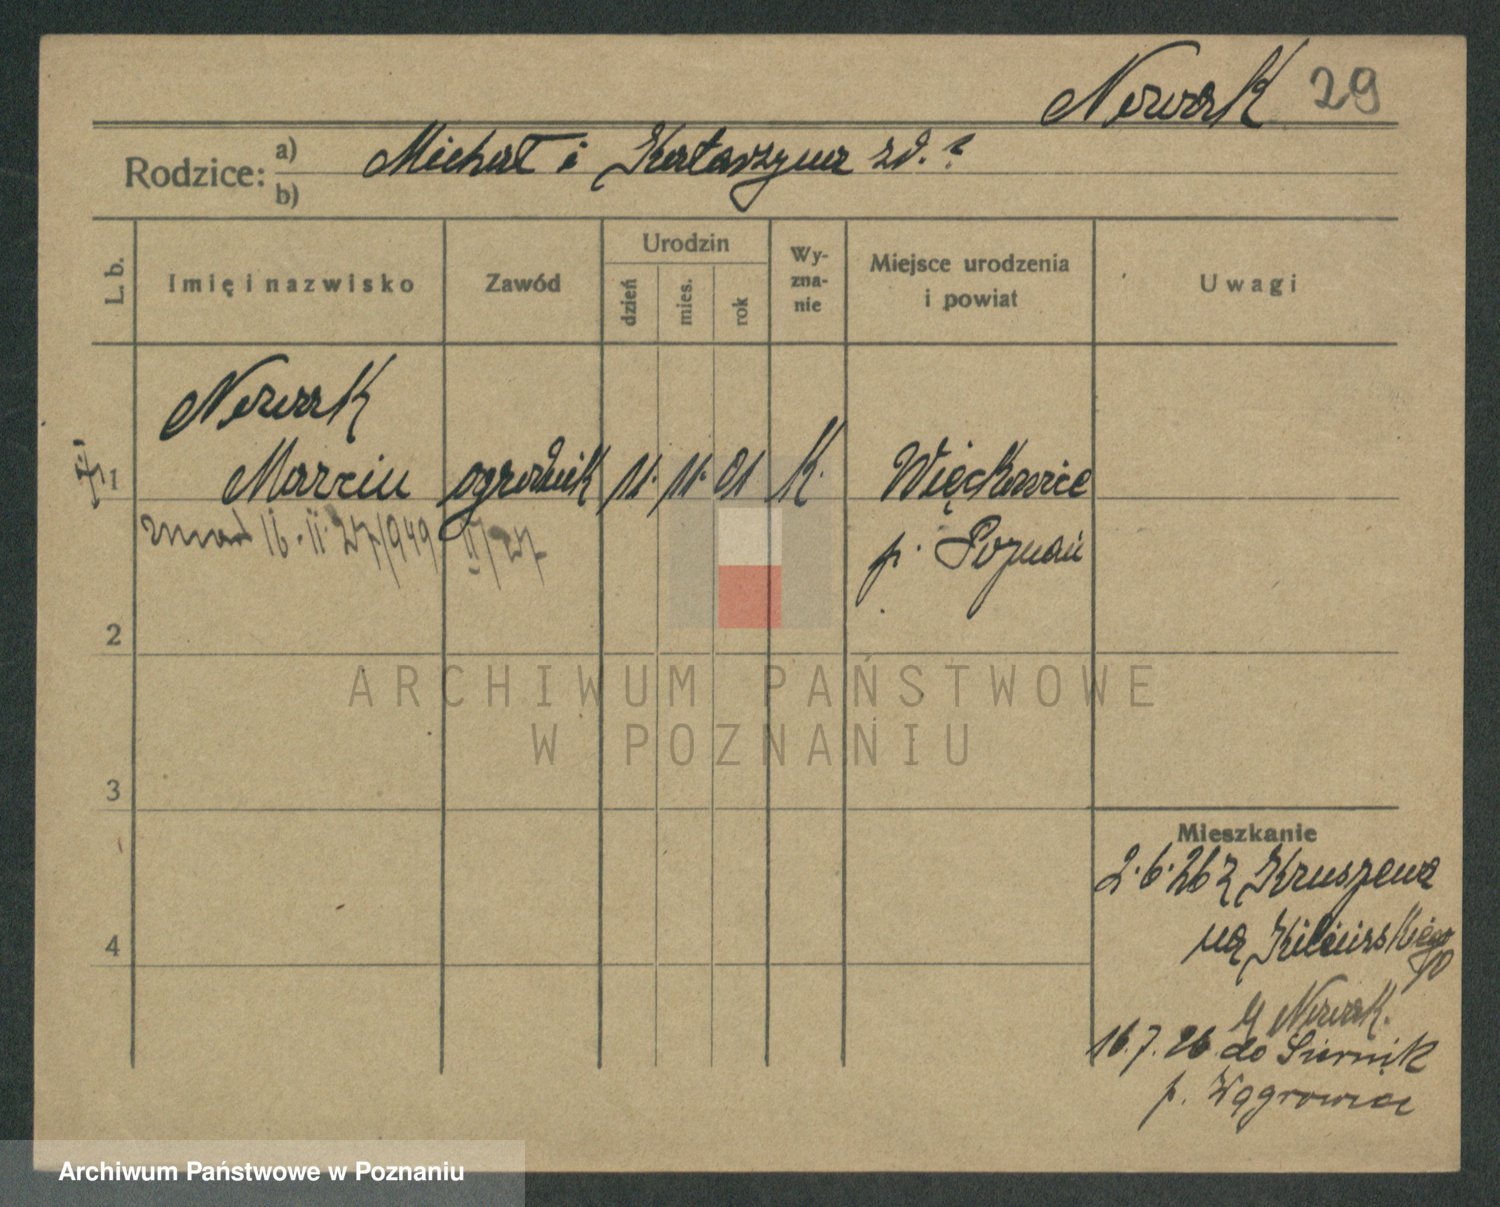 Nowak 29
Rodzice: a) Michał i Katarzyna zd. ?
b)
L. b.
Imię i nazwisko
Zawód
Urodzin
dzień
mies.
rok
Wy-
zna-
nie
Miejsce urodzenia
i powiat
Uwagi
Nowak
1 Marcin ogrodnik 11. 11. 01 K. Więckowice
zmarł 16. II. 27/949 II/27
p. Poznań
2
ARCHIWUM PAŃSTWOWE
W POZNANIU
3
Mieszkanie
2.6.26 z Kruszewa
na Kilińskiego
4
u Nowak.
16.7.26 do Siernik
p. Wągrowiec
Archiwum Państwowe w Poznaniu